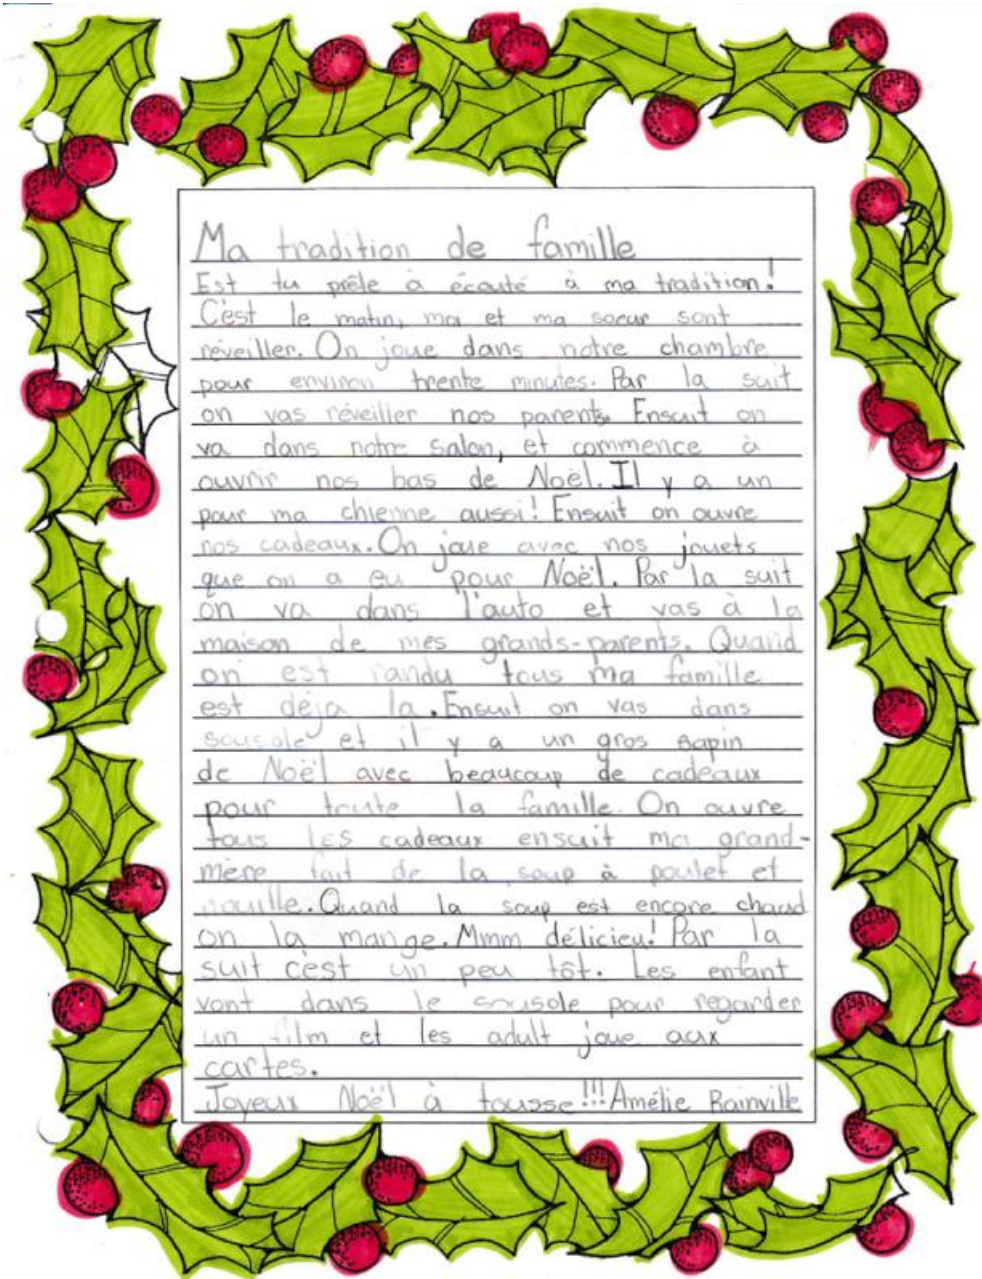 Ma tradition de famille
Est tu prêle à écouté à ma tradition!
C'est le matin, ma et ma soeur sont
réveiller. On joue dans notre chambre
pour environ trente minutes. Par la suit
on vas réveiller nos parents. Ensuit on
va dans notre salon, et commence à
ouvrir nos bas de Noël. Il y a un
pour ma chienne aussi! Ensuit on ouvre
nos cadeaux. On joue avec nos jouets
que on a eu pour Noël. Par la suit
on va dans l'auto et vas à la
maison de mes grands-parents. Quand
on est randu tous ma famille
est déja la. Ensuit on vas dans
sousole et il y a un gros sapin
de Noël avec beaucoup de cadeaux
pour toute la famille. On ouvre
tous les cadeaux ensuit ma grand-
mère fait de la soup à poulet et
nouille. Quand la soup est encore chaud
on la mange. Mmm délicieu! Par la
suit c'est un peu tôt. Les enfant
vont dans le sousole pour regarder
un film et les adult joue aux
cartes.
Joyeux Noël à tousse!!! Amélie Rainville